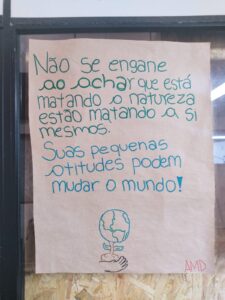 Não se engane
ao achar que está
matando a natureza
estão matando a si
mesmos.
Suas pequenas
atitudes podem
mudar o mundo!
AMD